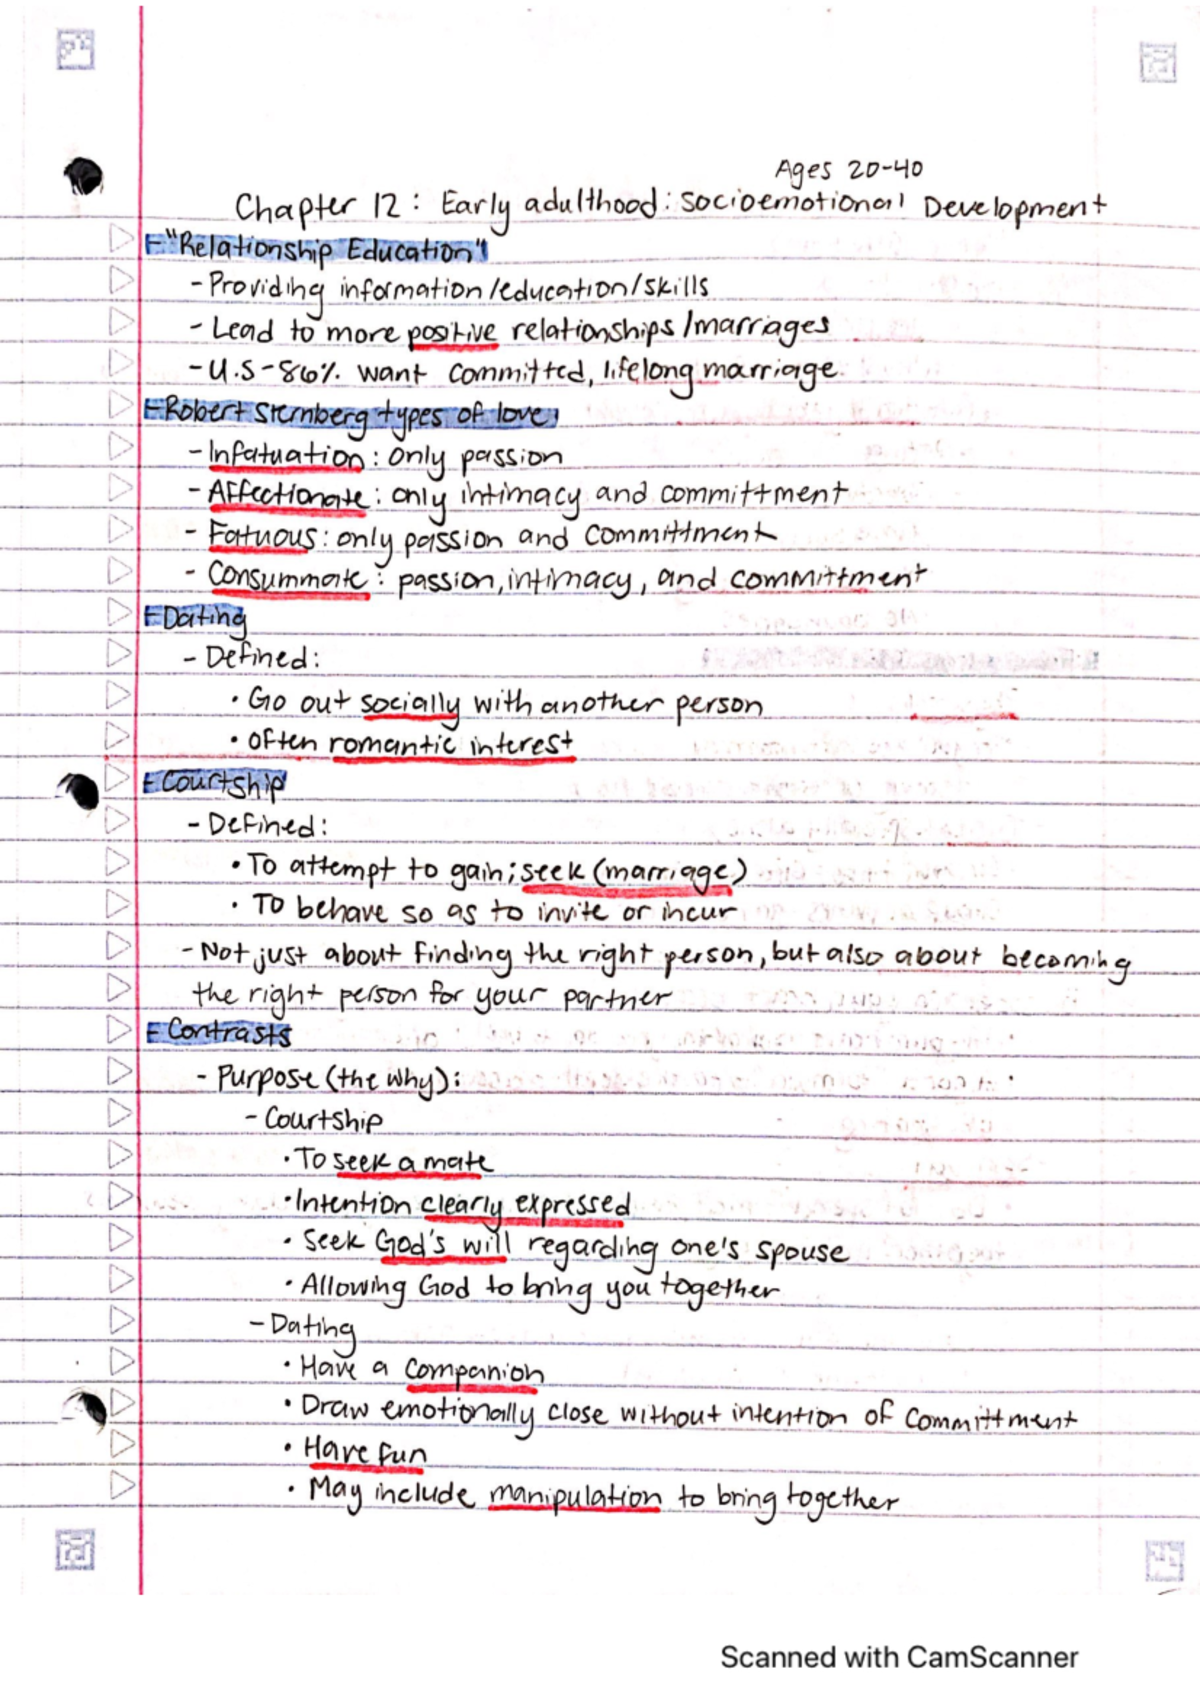 Ages 20-40
Chapter 12: Early adulthood: Socioemotional Development
-"Relationship Education"
-Providing information/education/skills
-Lead to more positive relationships/marriages
-U.S-86% want committed, lifelong marriage
-Robert Sternberg types of love
-Infatuation: only passion
-Affectionate: only intimacy and committment
-Fatuous: only passion and committment
-Consummate: passion, intimacy, and committment
-Dating
-Defined:
•Go out socially with another person
•Often romantic interest
-Courtship
-Defined:
•To attempt to gain; seek (marriage)
•To behave so as to invite or incur
-Not just about finding the right person, but also about becoming
the right person for your partner
-Contrasts
-Purpose (the why):
-Courtship
•To seek a mate
•Intention clearly expressed
•Seek God's will regarding one's spouse
•Allowing God to bring you together
-Dating
•Have a companion
•Draw emotionally close without intention of committment
•Have fun
•May include manipulation to bring together
Scanned with CamScanner